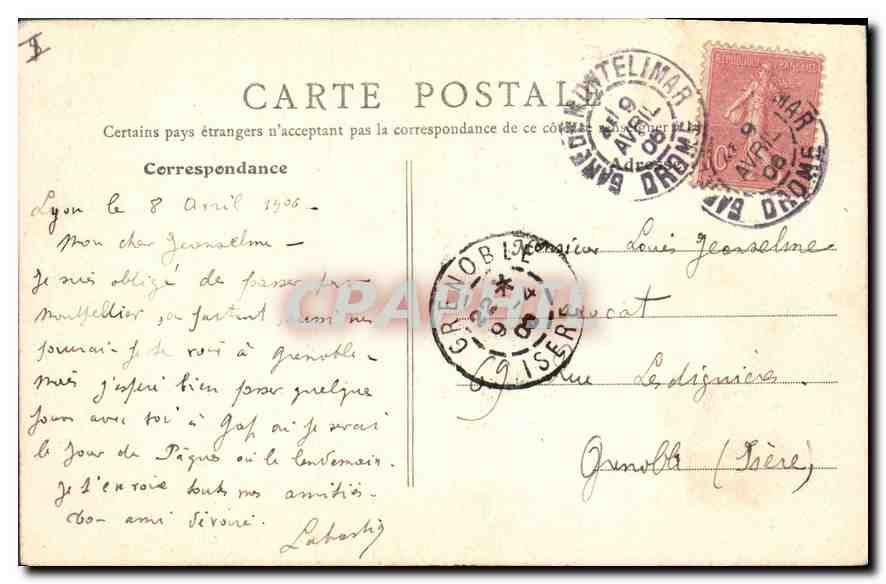 CARTE POSTALE
Certains pays étrangers n'acceptent pas la correspondance de ce côté se renseigner
Correspondance
Adresse
RÉPUBLIQUE FRANÇAISE
10
GARE DE MONTELIMAR
9
AVRIL
06
DROME
MAR
9
AVRIL
06
GAR DROME
GRENOBLE
*
22
9 - 4
06
ISERE
CPAPHIL
Lyon le 8 Avril 1906 -
Mon cher Jeanselme -
Je suis obligé de passer par
Montpellier, en partant, aussi ne
pourrai-je te voir à Grenoble -
Mais j'espère bien passer quelque
jours avec toi à Gap où je serai
le jour de Pâques ou le lendemain.
Je t'envoie toutes mes amitiés -
Ton ami dévoué.
Monsieur Louis Jeanselme
Avocat
9, rue Lesdiguières
Grenoble (Isère)